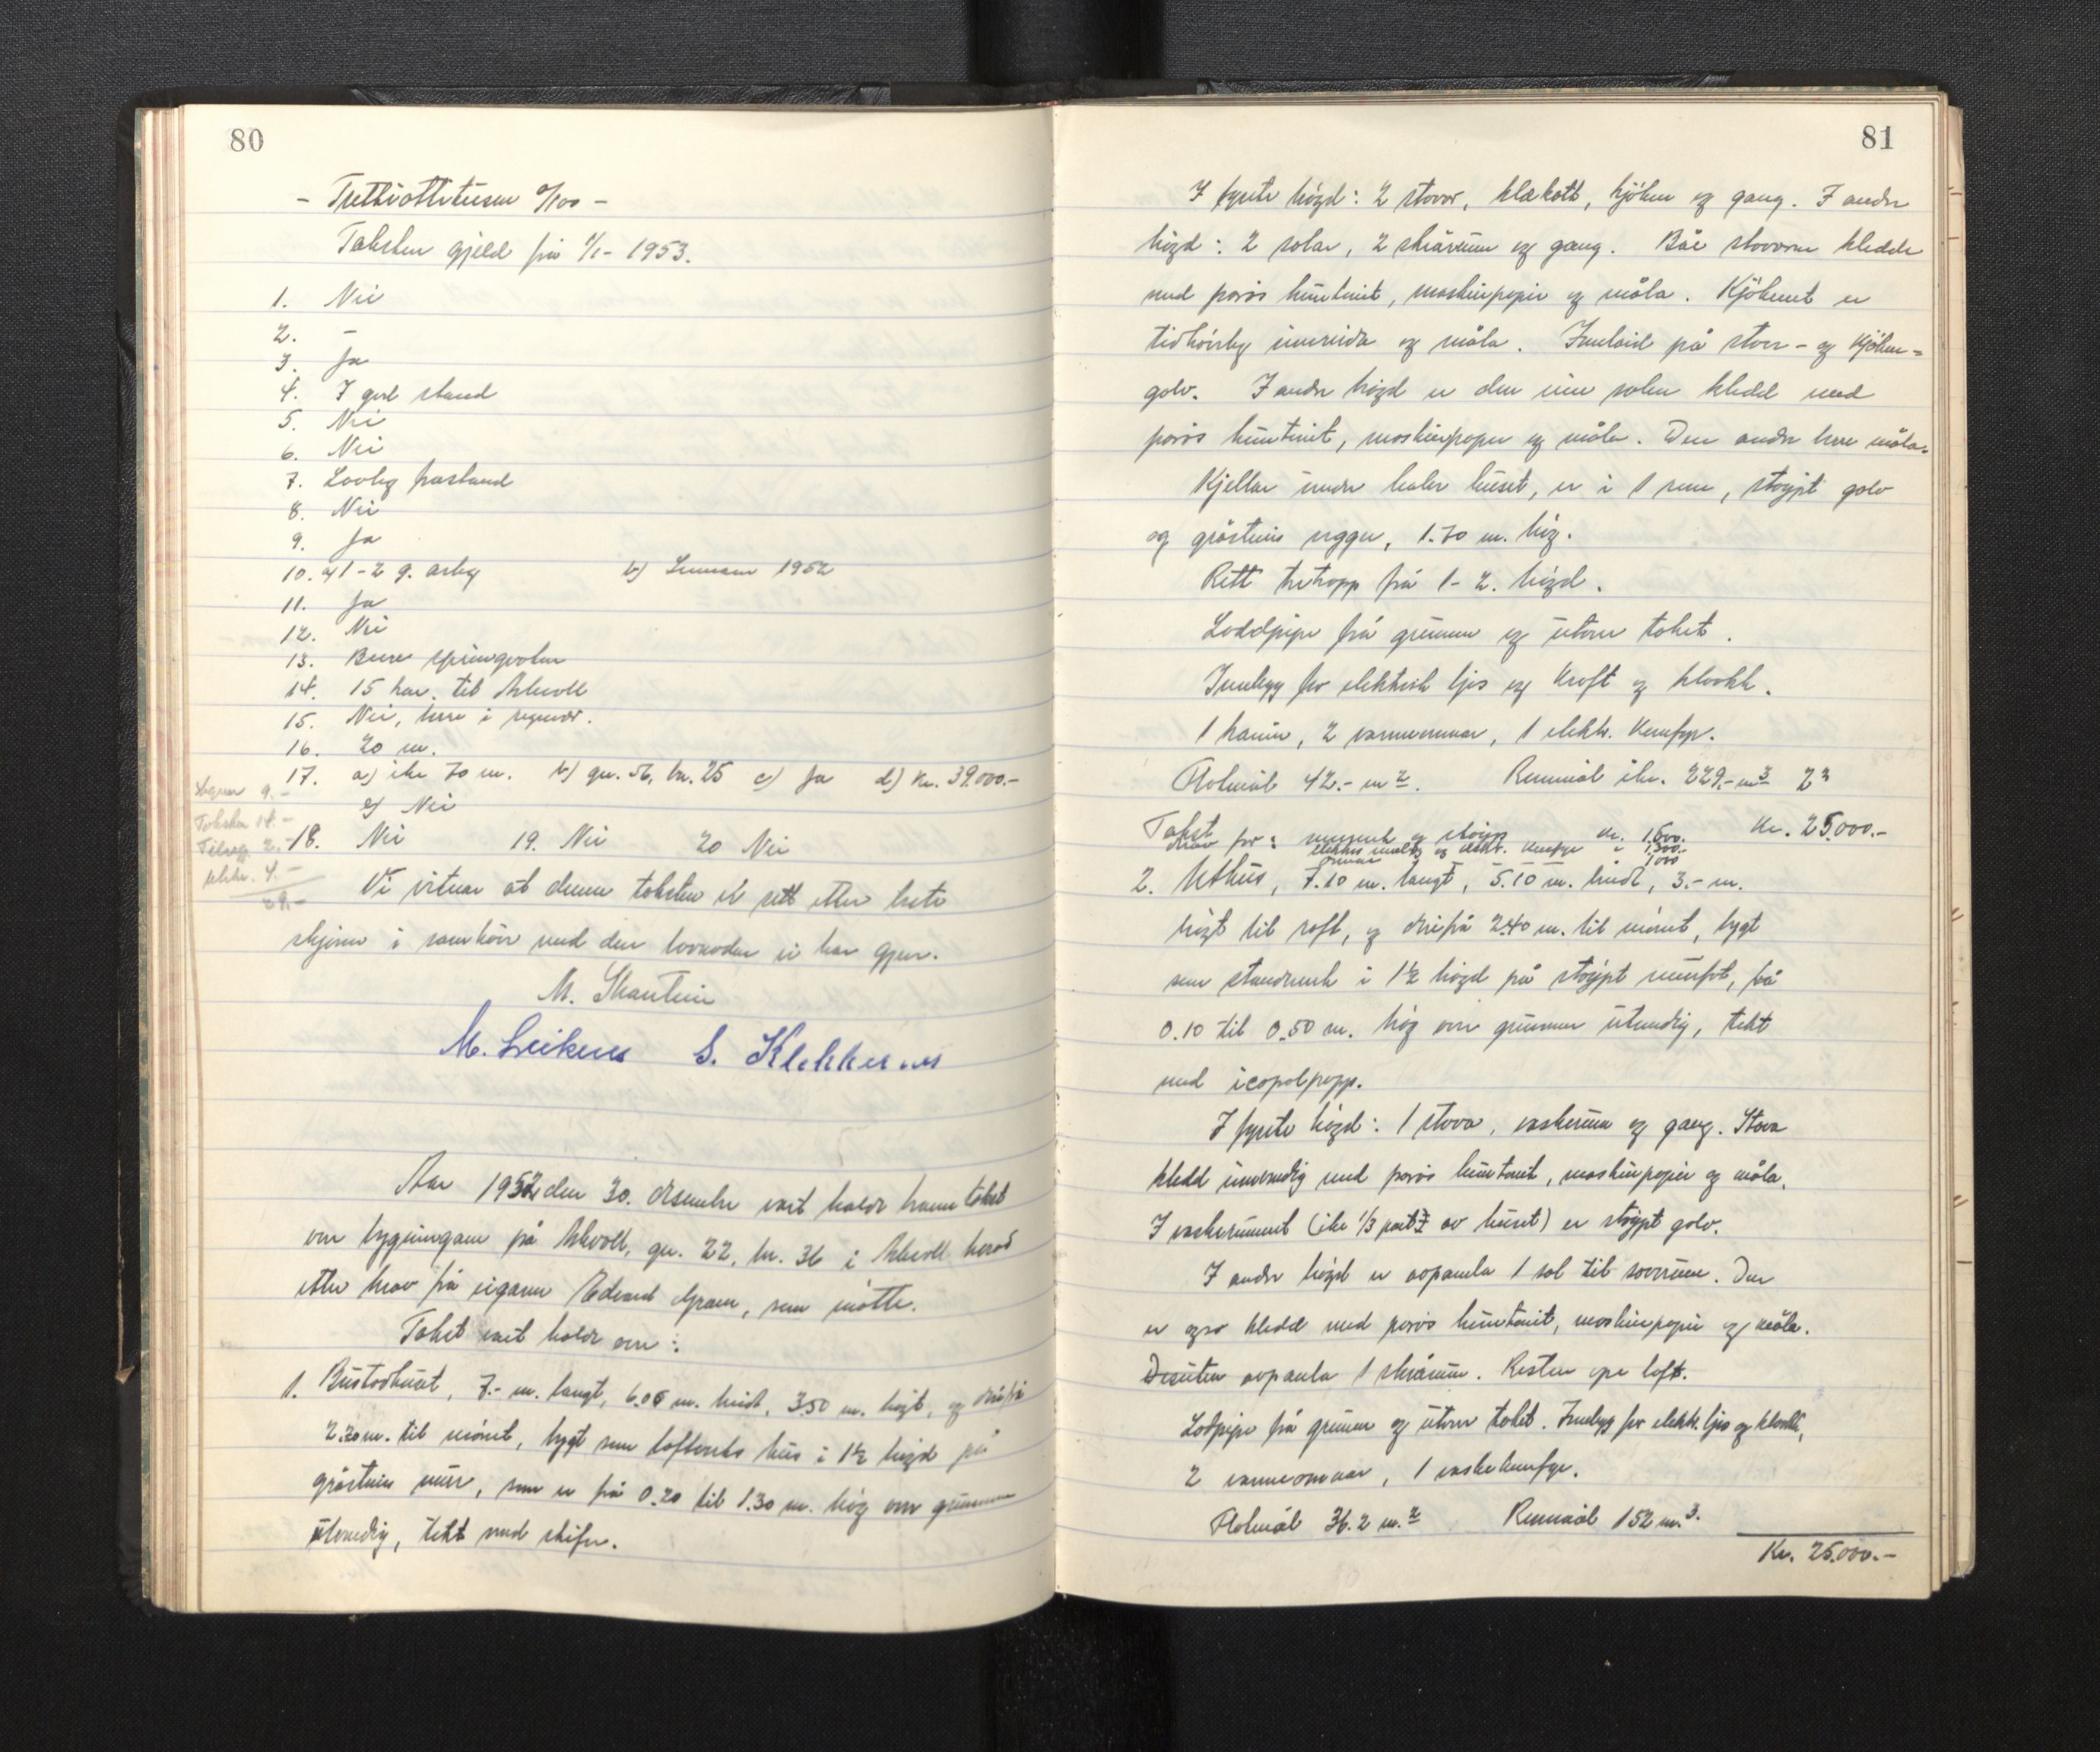 80
- Trettiåttetusen 0/100 -
Taksten gjeld frå 1/1- 1953.
1. Nei
2. -
3. Ja
4. I god stand
5. Nei
6. Nei
7. Lovleg frastand
8. Nei
9. Ja
10. a) 1-2 g. årleg b) Sumaren 1952
11. Ja
12. Nei
13. Berre springvatn
14. 15 km. til Askvoll
15. Nei, berre i
16. 20 m.
17. a) ikr 70 m. b) gn. 56, bn. 25 c) Ja d) Kr. 39.000.-
e) Nei
18. Nei 19. Nei 20 Nei
9.-
Taksten 14.-
Tilegg 2.-
4.-
29.-
Vi vitnar at denne taksten er sett etter beste
skjøn i samhøve med den lovnaden vi har gjeve.
M.
M. Leiknes S. Klokkernes
Aar 1952 den 30. desember vart halde branntakst
over bygningane på Askvoll, gn. 22, bn. 36 i Askvoll herad
etter krav frå eigaren Edvard Gram, som møtte.
Takst vart halde over:
1. Bustadhuset, 7.- m. langt, 6.05 m. breidt, 3.50 m. høgt, og derifrå
2.20 m. til mønet, bygt som lofteverks hus i 1½ høgd på
gråsteins mur, som er frå 0.20 til 1.30 m. høg over grunnen
utvendig, tekt med skifer.
81
I fyrste høgd: 2 stover, klekott, kjøken og gang. I andre
høgd: 2 salar, 2 skrårum og gang. Båe stovorne kledde
med porøs huntonit, maskinpapir og måla. Kjøkenet er
tidhøveleg innreida og måla. Innlaid på stove- og kjøken-
golv. I andre høgd er den eine salen kledd med
porøs huntonit, maskinpapir og måla. Den andre berre måla.
Kjellar under heile huset, er i 1 rum, støypt golv
og gråsteins veggar, 1.70 m. høg.
Rett tretrapp frå 1-2. høgd.
Loddpipe frå grunnen og utover taket.
Innlegg for elektrisk ljos og kraft og klokke.
1 kamin, 2 varmeomnar, 1 elektr. komfyr.
Flatmål 42.- m². Rummål ikr. 229.- m³
Takst Kr. 25.000.-
for: og støyp kr. 1.600.-
og elektr. komfyr " 1.300.-
1000
2. Uthus, 7.10 m. langt, 5.10 m. breidt, 3.- m.
høgt til raft, og derifrå 2.40 m. til mønet, bygt
som standverk i 1½ høgd på støypt murfot, frå
0.10 til 0.50 m. høg over grunnen utvendig, tekt
med icopalpapp.
I fyrste høgd: 1 stova, vaskerum og gang. Stova
kledd innvendig med porøs huntonit, maskinpapir og måla.
I vaskerummet (ikr 1/3 part av huset) er støypt golv.
I andre høgd er avpanela 1 sal til soverum. Den
er også kledd med porøs huntonit, maskinpapir og måla.
Desuten avpanela 1 skrårum. Resten ope loft.
Lodpipe frå grunnen og utover taket. Innlegg for elektr. ljos og klokke,
2 varmeomnar, 1 vaskekomfyr.
Flatmål 36.2 m.² Rummål 152 m.³
Kr. 25.000.-